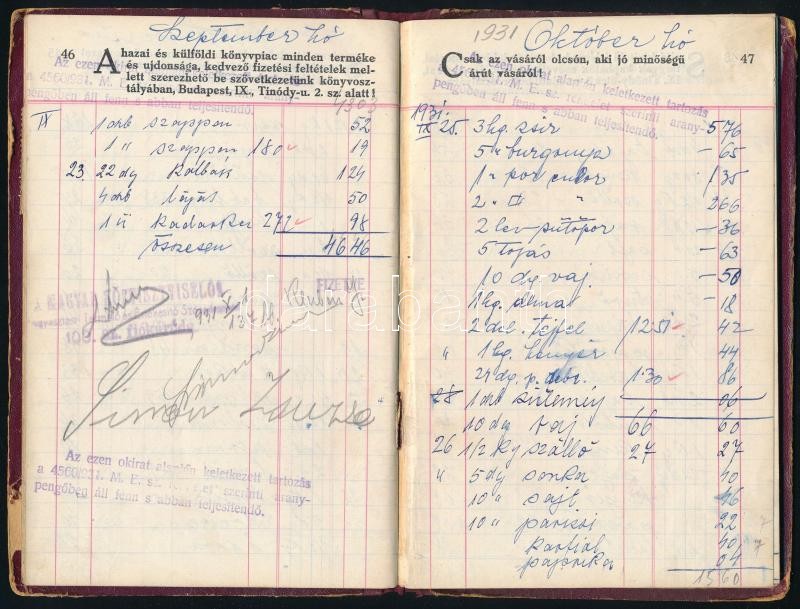 Szeptember hó
46
A hazai és külföldi könyvpiac minden terméke
és ujdonsága, kedvező fizetési feltételek mel-
lett szerezhető be Szövetkezetünk könyvosz-
tályában, Budapest, IX., Tinódy-u. 2. sz. alatt!
4303
IX 1 drb szappan 52
1 " szappan 180 19
23. 22 dg kolbász 124
4 drb tojás 50
1 ü Kadarka 272 98
összesen 46 46
FIZETVE
A MAGYAR KÖZTISZTVISELŐK
fiókárudá
Simon
Az ezen okirat alapján keletkezett tartozás
a 4560/931. M. E. sz. rendelet szerinti arany-
pengőben áll fenn s abban teljesítendő.
1931 Október hó
Csak az vásárol olcsón, aki jó minőségű
árút vásárol!
47
Az ezen okirat alapján keletkezett tartozás
a 4560/931. M. E. sz. rendelet szerinti arany-
pengőben áll fenn s abban teljesítendő.
1931.
IX 25. 3 kg zsír 576
5 " burgonya – 65
1 " por cukor 135
2 " II " 266
2 lev. sütőpor – 36
5 tojás – 63
10 dg vaj – 50
1 kg alma – 18
2 del. tejfel 1251 42
" 1 kg kenyér 44
24 dg p. 1·30 86
28 1 drb sütemény 06
10 dg vaj 66 60
26 1/2 kg szőllő 27 27
" 5 dg sonka 40
10 " sajt 46
10 " parizsi 22
karfiol 40
paprika 04
1560
darabanth